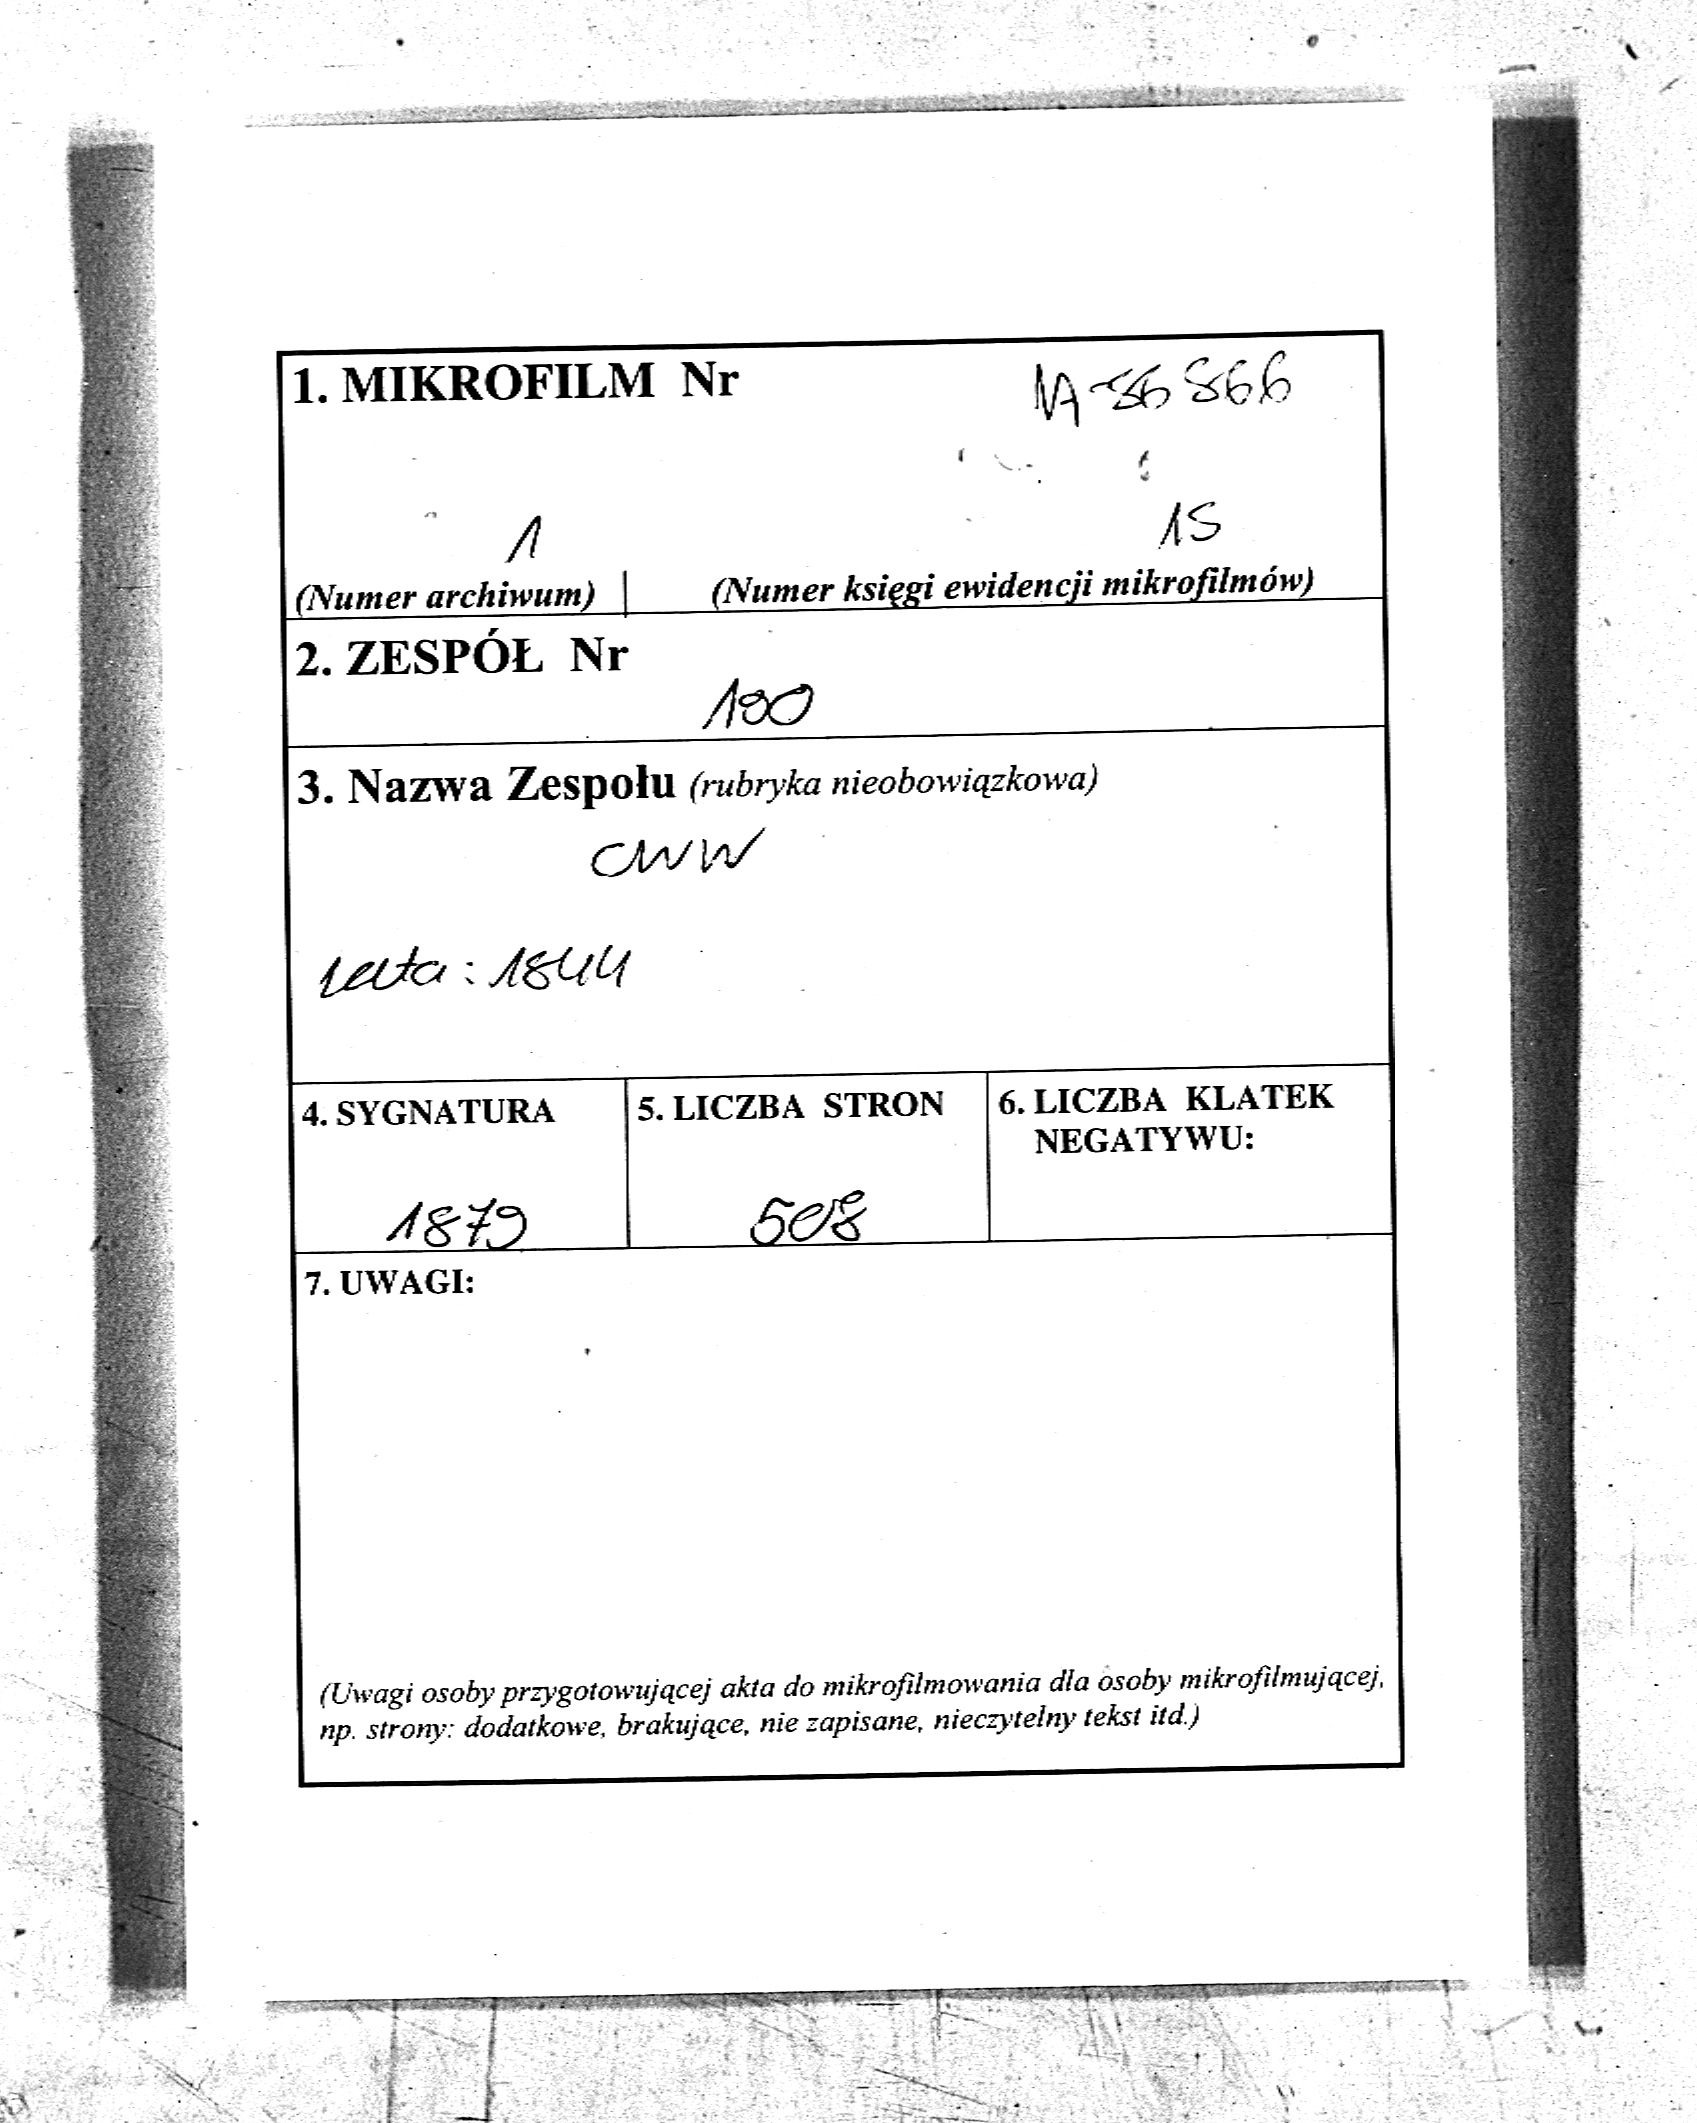 1. MIKROFILM Nr
1
15
(Numer archiwum) | (Numer księgi ewidencji mikrofilmów)
2. ZESPÓŁ Nr
190
3. Nazwa Zespołu (rubryka nieobowiązkowa)
CWW
lata : 1844
4. SYGNATURA
1879
5. LICZBA STRON
508
6. LICZBA KLATEK
NEGATYWU:
7. UWAGI:
(Uwagi osoby przygotowującej akta do mikrofilmowania dla osoby mikrofilmującej,
np. strony: dodatkowe, brakujące, nie zapisane, nieczytelny tekst itd.)